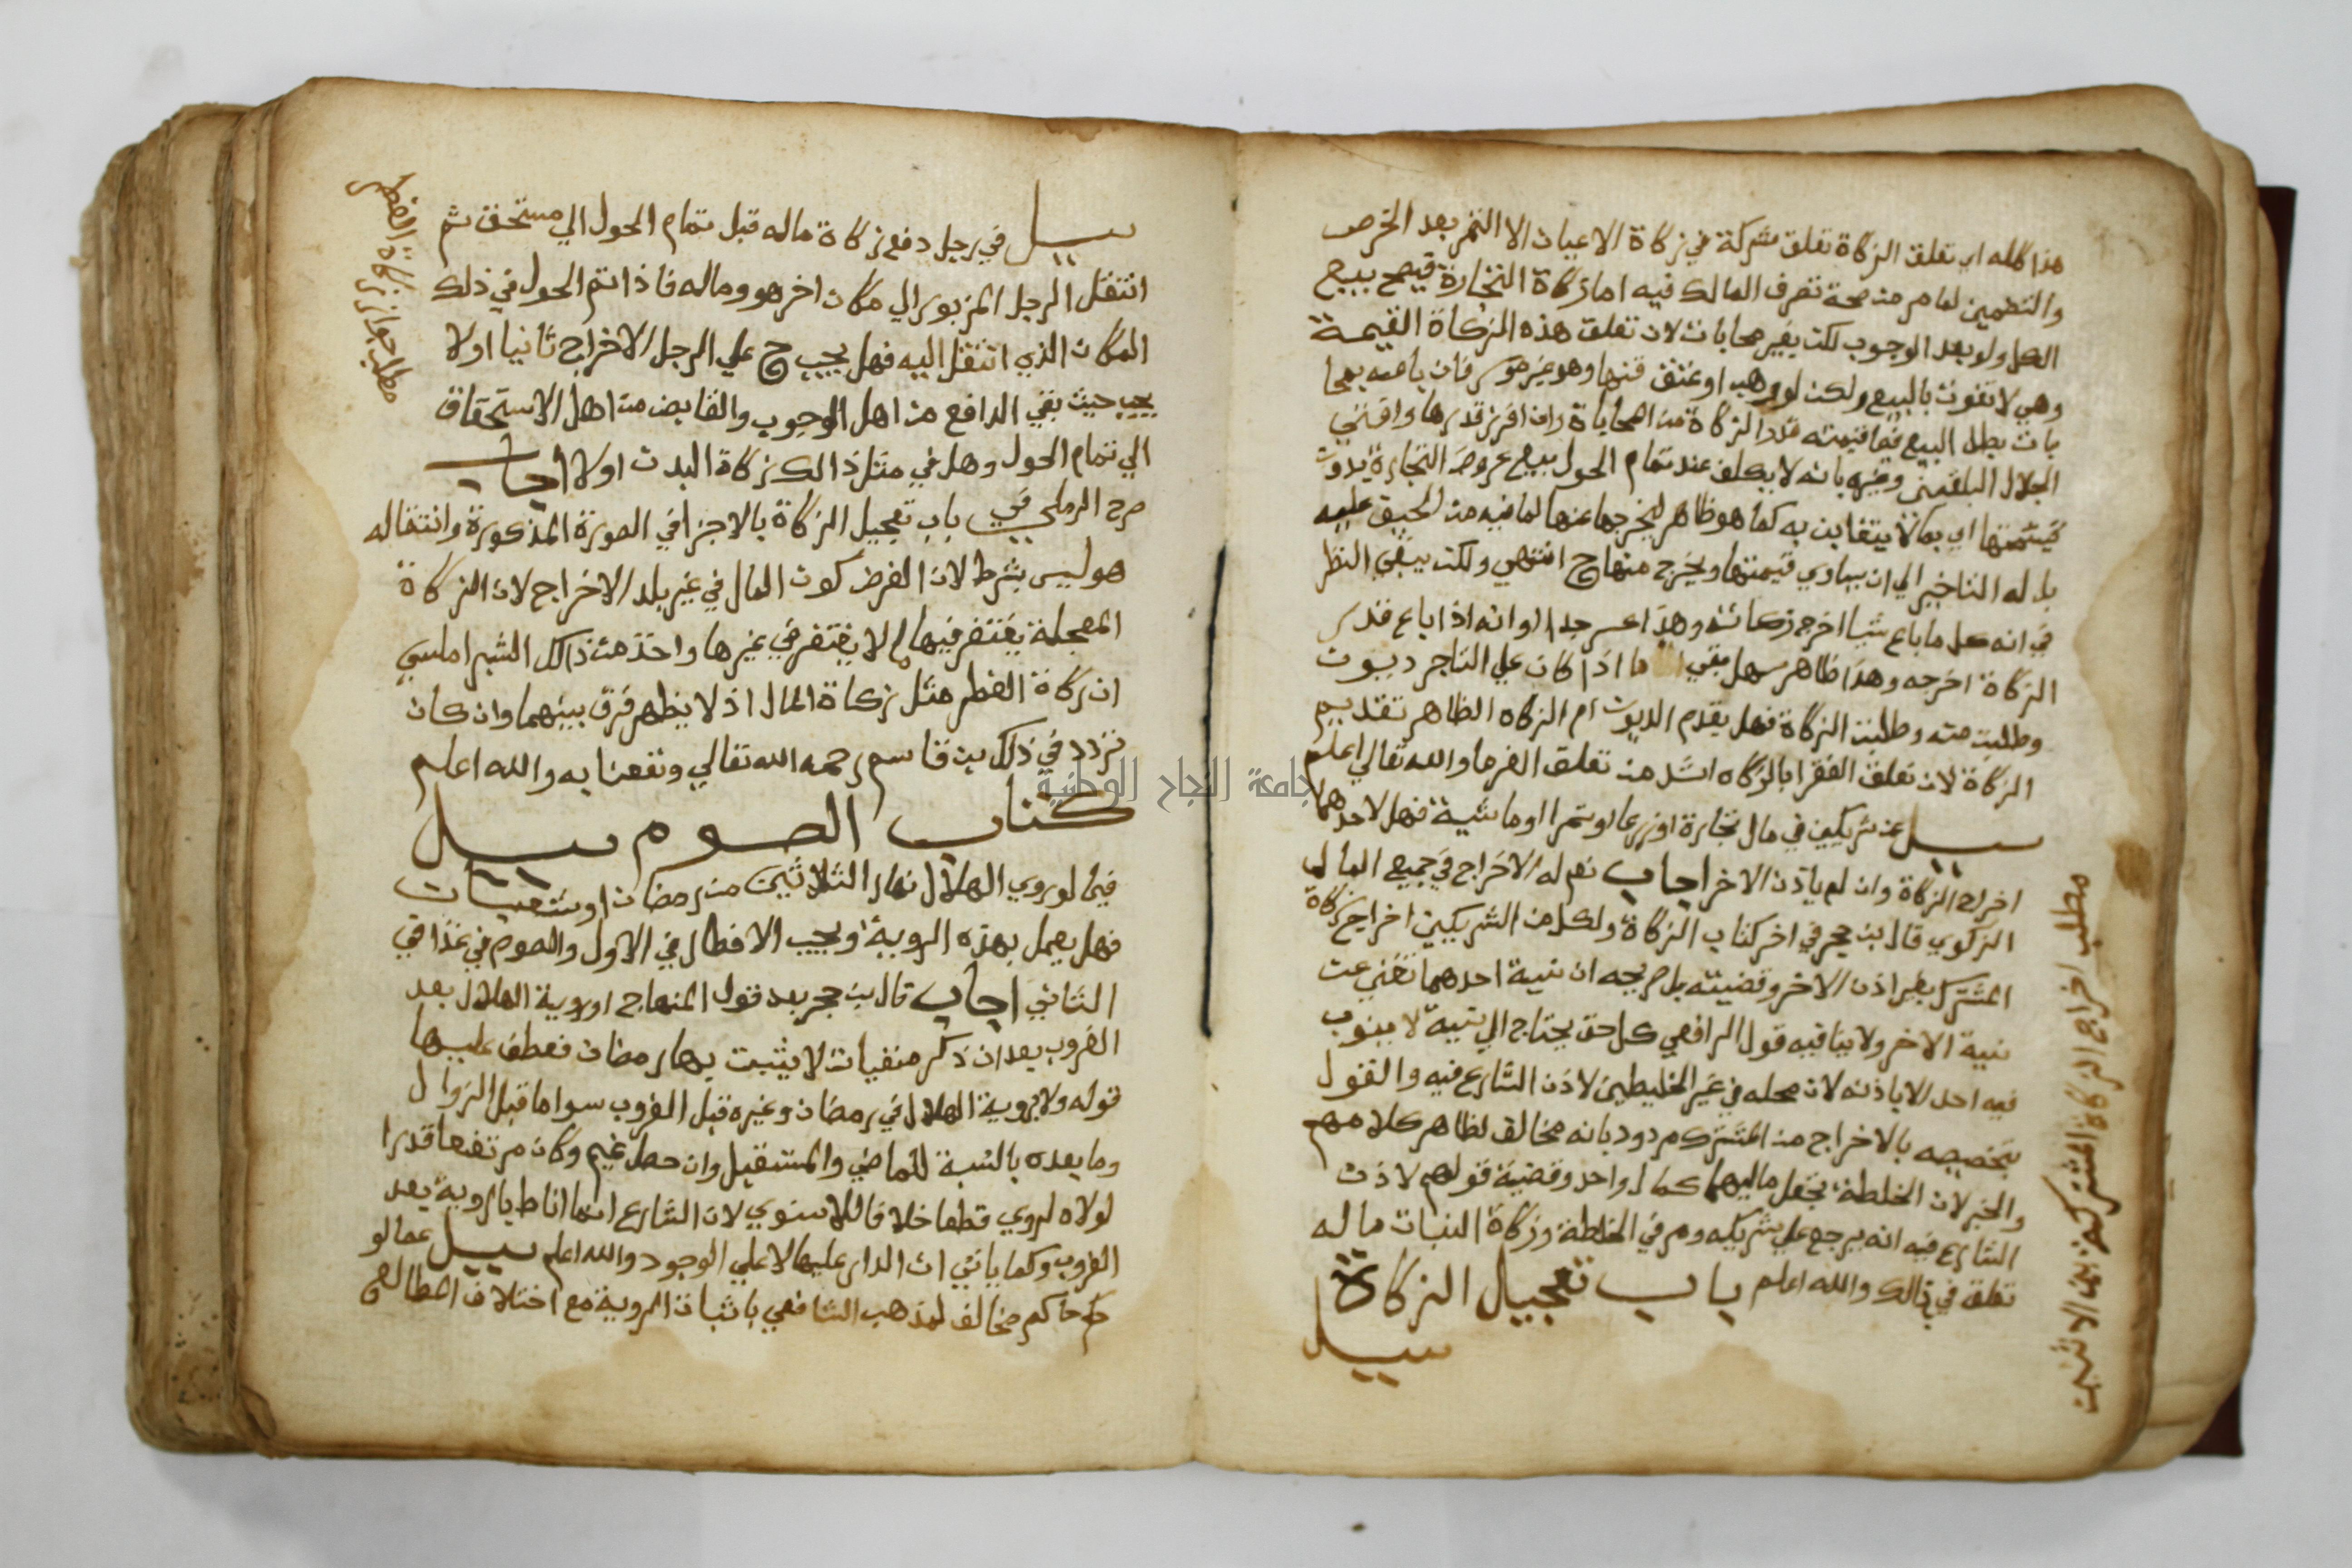 هذا كله ان تعلق الزكاة تعلق شركة في زكاة الاعيان الا الثمر بعد الخرص
والتضمين لما مر من صحة تصرف المالك فيه اما زكاة التجارة فيصح بيع
الكل ولو بعد الوجوب لكن بغير محابات لان تعلق هذه الزكاة القيمة
وهي لا تفوت بالبيع ولكن لو وهب او عتق قنها وهو غير موسر فان باعه بمحا
باة بطل البيع فما قيمته قدر الزكاة من المحاباة وان افرز قدرها وافتي
الجلال البلقيني وغيره بانه لا يكلف عند تمام الحول بيع عروض التجارة بدون
قيمتها اي بما لا يتغابن به كما هو ظاهر ليخرجها عنها لما فيه من الحيف عليه
بل له التاخير الي ان يساوي قيمتها ويخرج منها ح انتهي ولكن يبقي النظر
في انه كل ما باع شيا اخرج زكاته وهذا عسر جدا او انه اذا باع قدر
الزكاة اخرجه وهذا ظاهر سهل بقي ما اذا كان علي التاجر ديون
وطلبت منه وطلبت الزكاة فهل يقدم الديون ام الزكاه الظاهر تقديم
الزكاة لان تعلق الفقرا بالزكاه اشد من تعلق الغرما والله تعالي اعلم
سيل عن شريكين في مال تجارة او زرعا او تمرا او ماشية فهل لاحدهما
اخراج الزكاة وان لم ياذن الاخر اجاب نعم له الاخراج في جميع المال
الزكوي قال بن حجر في اخر كتاب الزكاة ولكل من الشريكين اخراج زكاة
المشترك بغير اذن الاخر وقضيته بل صريحه ان نية احدهما تغني عن
نية الاخر ولا ينافيه قول الرافعي كل حق يحتاج الي نية لا ينوب
فيه احد الا باذنه لان محله في غير الخليطين لاذن الشارع فيه والقول
بتخصيصه بالاخراج من المشترك مردود بانه مخالف لظاهر كلامهم
والخبر لان الخلطة تجعل ماليهما كمال واحد وقضية قولهم لاذن
الشارع فيه انه يرجع علي شريكه ومر في الخلطة وزكاة النبات ما له
تعلق في ذالك والله اعلم باب تعجيل الزكاة
سيل
مطلب اخراج الزكاة المشتركة بين الاثنين
سيل في رجل دفع زكاة ماله قبل تمام الحول الي مستحق ثم
انتقل الرجل المزبور الي مكان اخر هو وماله فاذا تم الحول في ذلك
المكان الذي انتقل اليه فهل يجب ح علي الرجل الاخراج ثانيا اولا
يجب حيث بقي الدافع من اهل الوجوب والقابض من اهل الاستحقاق
الي تمام الحول وهل في مثل ذالك زكاة البدن اولا اجاب
صرح الرملي في باب تعجيل الزكاة بالاجزا في الصورة المذكورة وانتقاله
هو ليس بشرط لان الفرض كون المال في غير بلد الاخراج لان الزكاة
المعجلة يغتفر فيها ما لا يغتفر في غيرها واخذ من ذالك الشبراملسي
ان زكاة الفطر مثل زكاة المال اذ لا يظهر فرق بينهما وان كان
تردد في ذلك بن قاسم رحمه الله تعالي ونفعنا به والله اعلم
كتاب الصوم سيل
فيما لو روي الهلال نهار الثلاثين من رمضان او شعبان
فهل يعمل بهذه الروية ويجب الافطار في الاول والصوم في غدا في
الثاني اجاب قال بن حجر بعد قول المنهاج او روية الهلال بعد
الغروب بعد ان ذكر منفيات لا يثبت بها رمضان فعطف عليها
قوله ولا بروية الهلال في رمضان وغيره قبل الغروب سوا ما قبل الزوال
وما بعده بالنسبة للماضي والمستقبل وان حصل غيم وكان مرتفعا قدرا
لولاه لروي قطعا خلافا للاسنوي لان الشارع انما اناط بالروية بعد
الغروب وكما ياتي ان المدار عليها لا علي الوجود والله اعلم سيل عما لو
حكم حاكم مخالف لمذهب الشافعي باثبات الروية مع اختلاف المطالع
مطلب جواز زكاة الفطر
جامعة النجاح الوطنية